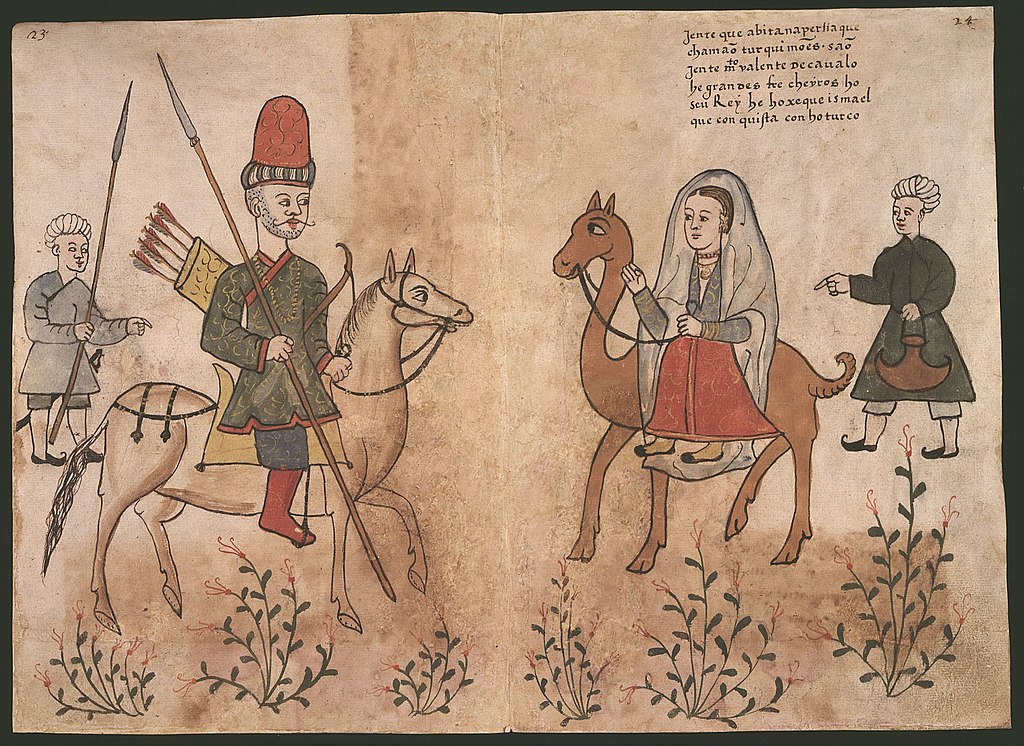 23
24
Jente que abita na persia que
chamaõ turquimoẽs. saõ
Jente mto valente De caualo
he grandes fre cheyros ho
seu Rey he hoxeque ismael
que con quista con ho turco